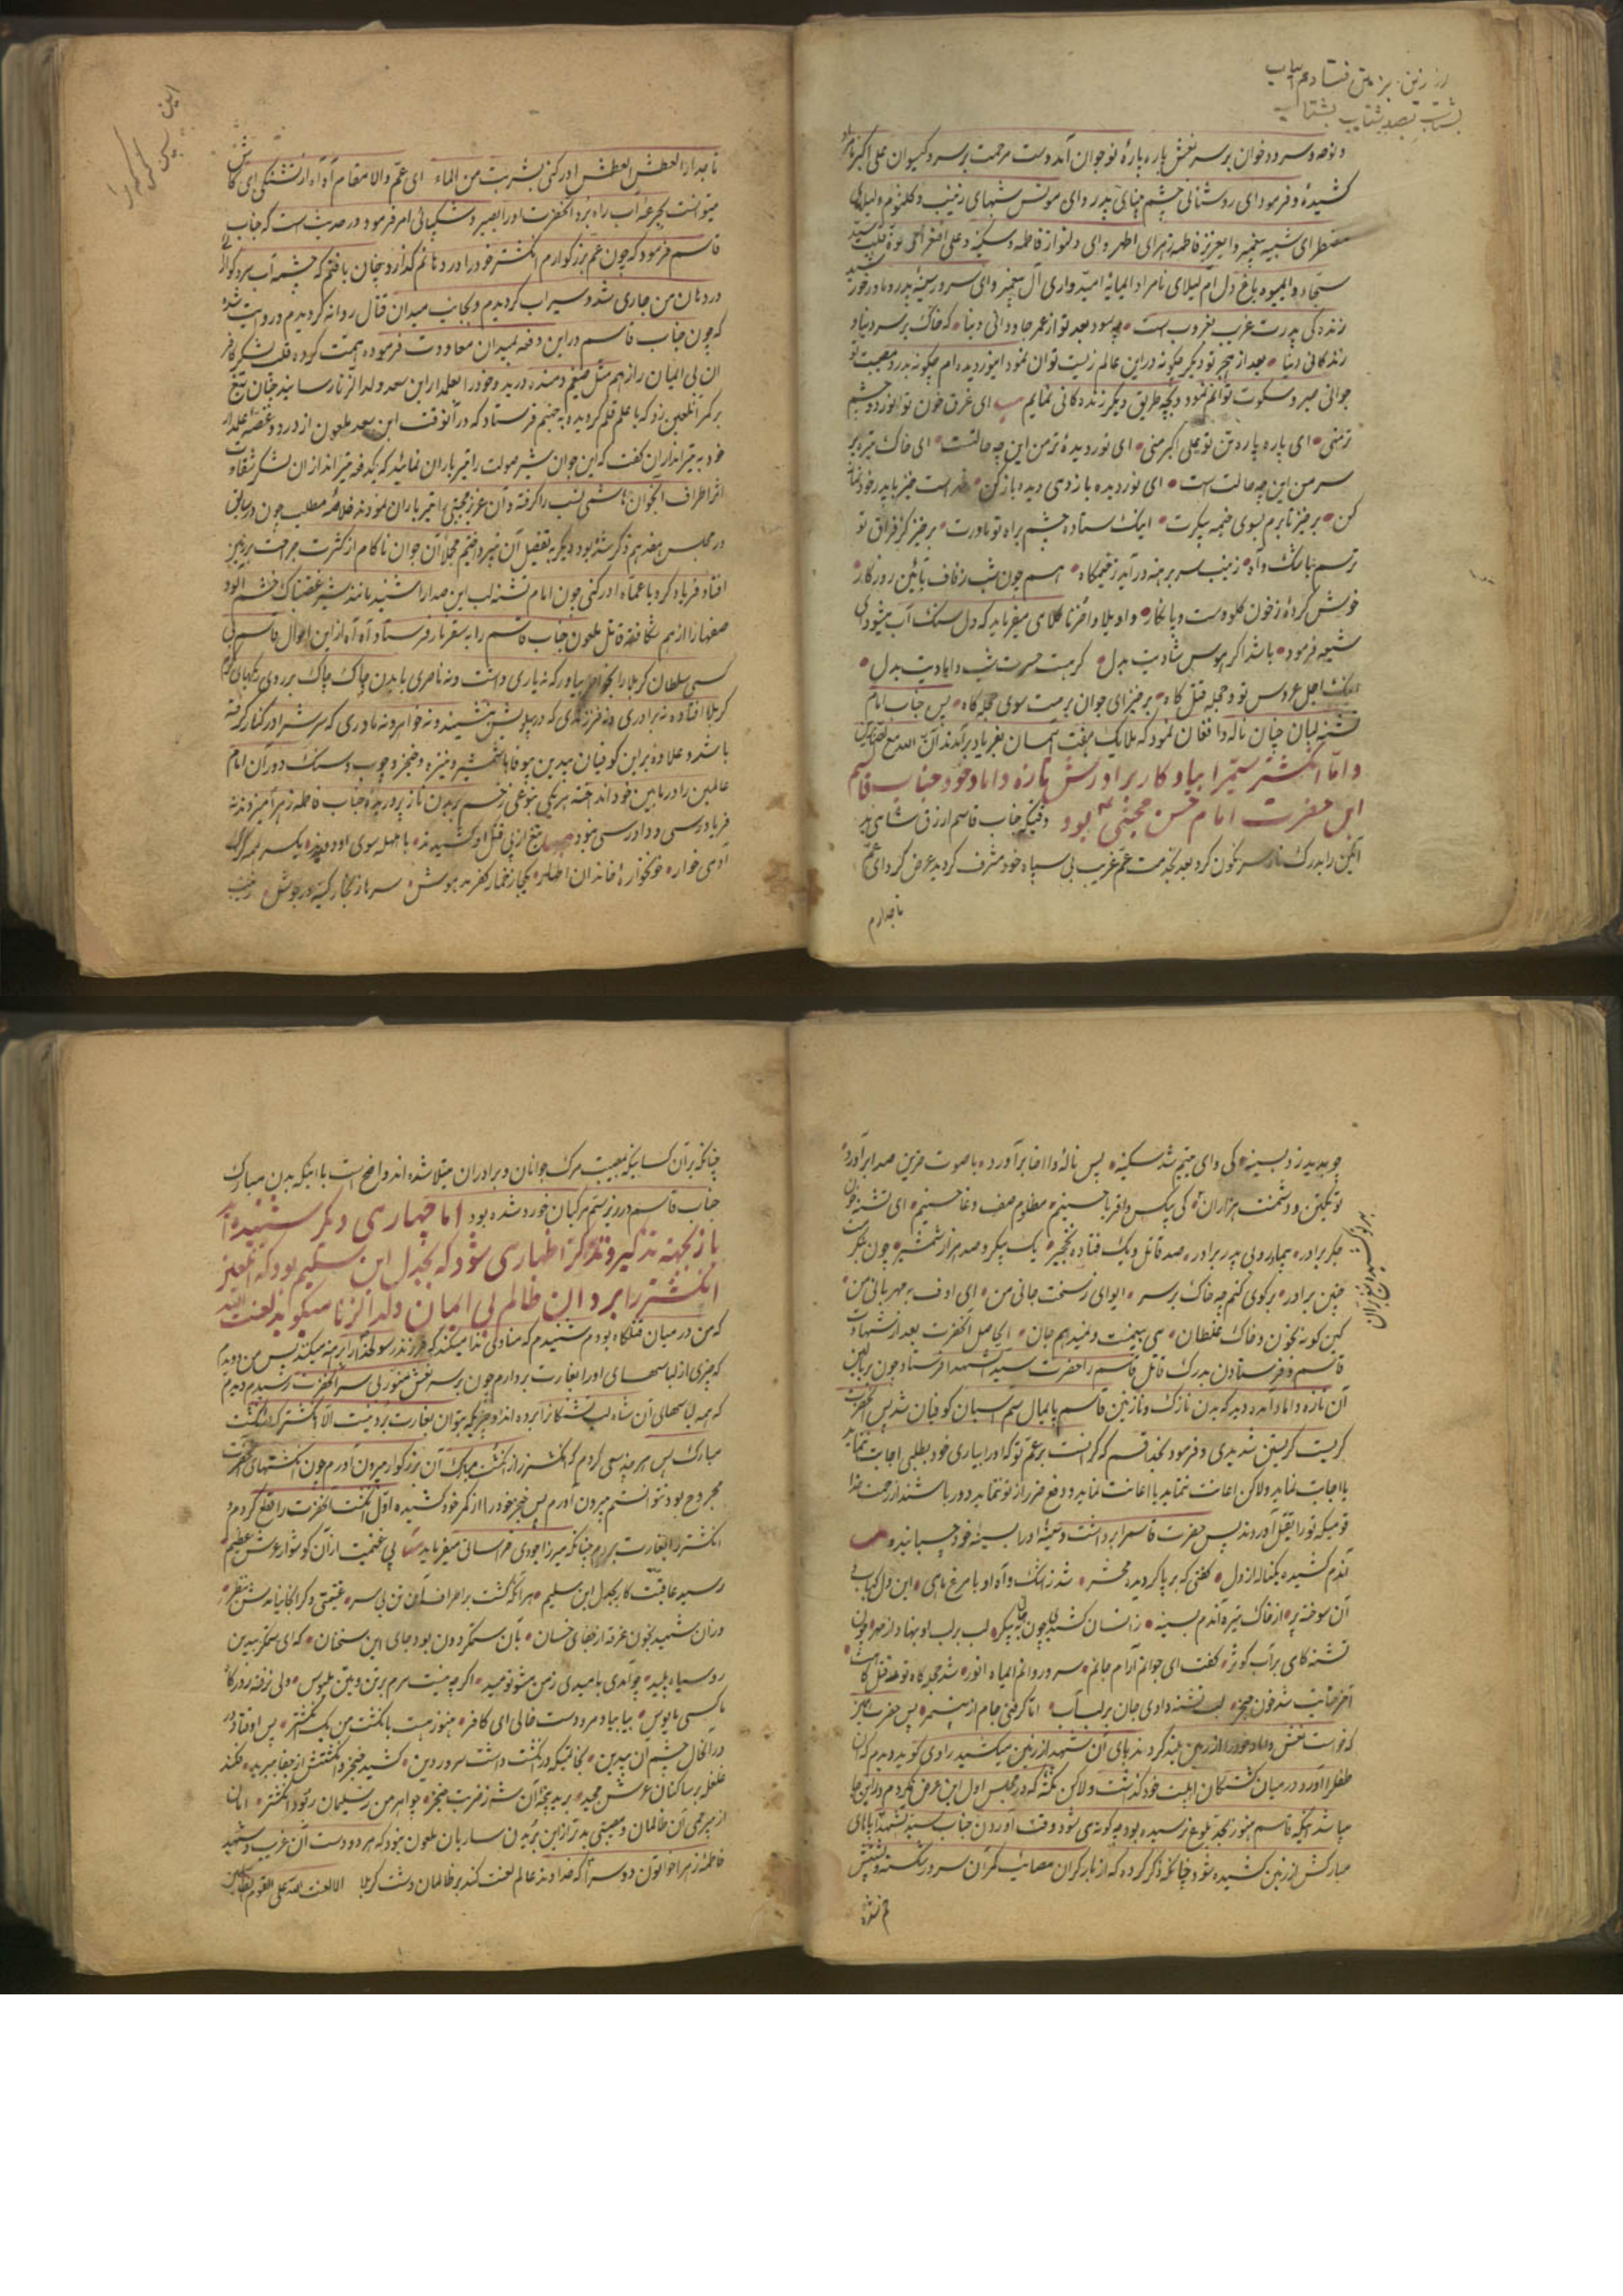 و نوحه و سرود خوان بر سر نعش پاره پارهٔ نوجوان آمد دست مرحمت بر سر و گیسوان علی اکبر
کشیده و فرمود ای روشنائی چشم بینای پدر وای مونس شبهای زینب و کلثوم
مضطر ای شبیه پیغمبر و ایعزیز فاطمه زهرای اطهر وای دلنواز فاطمه و سکینه و علی اصغر
سجاد و ایمیوه باغ دل ام لیلای نامراد ایمایهٔ امیدواری آل پیغمبر وای سرور سینهٔ پدر و مادر
زندگی پدرت غریب بغروب است چه سود بعد تو از عمر جاودانی دنیا که خاک بر سر دنیا و
زندگانی دنیا بعد از هجر تو دیگر چگونه در این عالم زیست توان نمود اینور دیده ام چگونه بدرد مصیبت تو
جوانی صبر و سکوت توانم نمود و بچه طریق دیگر زنده گانی نمایم ای غرق خون تو انور دو چشم
تر منی ای پاره پاره تن تو علی اکبر منی ای نور دیدهٔ تر من این چه حالتست ای خاک تیره بر
سر من این چه حالت است ای نور دیده باز دمی دیده باز کن
کن برخیز تا برم بسوی خیمه پیکرت اینک ستاده چشم براه تو مادرت برخیز کز فراق تو
ترسم بنا اشک و آه زینب سر برهنه در آید ز خیمگاه
خویش کرده ز خون گلو دست و پا نگار واویلا و احزنا کلامی میفرماید که دل سنگ آب میشود ای
شیعه فرمود باشد اگر هوس شادیت بدل گر هست حسرت شب دامادیت بدل
اینک اجل عروس تو و حجله قتلگاه برخیز ای جوان برمت سوی حجله گاه پس جناب امام
تشنه لبان چنان ناله و افغان نمود که ملائک هفت آسمان بفریاد برآمدند ان الله مع الصابرین
و اما انگشتر ستمرا بیاد کار برادرش تازه داماد خود جناب قاسم
ابن حضرت امام حسن مجتبی بود وقتیکه جناب قاسم ارزق شامی پد
آئین را بدرک نار سرنگون کرد بعد بخدمت عم غریب بی سپاه خود مشرف گردید عرض کرد ای عم
تاجدارم
تاجدار العطش العطش ادرکنی بشربت من الماء ای عم والا مقام آه آه از تشنگی ای کاش
میتوانست بجرعه آب راه برد آنحضرت او را بصبر و شکیبائی امر فرمود و در حدیث است که جناب
قاسم فرمود که چون عم بزرگوارم انگشتر خود را در دهانم گذارد چنان یافتم که چشمه آب سرد گوارا
در دهان من جاری شد و سیراب گردیدم و بجانب میدان قتال روانه گردیدم و رویت شده
که چون جناب قاسم در این دفعه بمیدان معاودت فرموده همت کرده قلب لشکر کافر
ان بی ایمان را از هم مثل ضیغم دمنده درید و خود را بعلمدار ابن سعد ولد الزنا رسانید چنان تیغ
بر کمر آنلعین زد که با علم قلم گردیده بجهنم فرستاد که در آنوقت ابن سعد ملعون از درد و غصه علمدار
خود به تیراندازان گفت که این جوان شیر صولت را تیر باران نمائید که یکدفعه تیراندازان لشکر شقاوت
اثر اطراف آنجوان هاشمی نسب را گرفته و آن عزیز مجتبی را تیر باران نمودند خلاصهٔ مطلب چون در سابق
در مجلس هفدهم ذکر شده بود دیگر به تفصیل آن نپرداختم مجملاً آن جوان ناکام از کثرت جراحت بر زمین
افتاد فریاد کرد یا عماه ادرکنی چون امام تشنه لب این صدا را شنید مانند شیر غضبناک خشم آلود
صفها را از هم شکافته قاتل ملعون جناب قاسم را به سقر نار فرستاد آه آه از این احوال قاسم
کسی سلطان کربلا را بخاطر بیاورد که نه یاری داشت و نه ناصری با بدن چاک چاک بر روی ریگهای گرم
کربلا افتاده نه برادری و نه فرزندی که در پهلویش بنشیند و نه خواهر و نه مادری که سرش را در کنار گرفته
باشد و علاوه بر این کوفیان بیدین بیوفا با شمشیر و نیزه و خنجر و چوب و سنگ دور آن امام
عالمین را در مابین خود انداخته هر یکی بنوعی زخم بر بدن ناز پروریدهٔ جناب فاطمه زهرا میزدند نه
فریادرسی و دادرسی نبود تیغ از پی قتل او کشیدند با حمله سوی او دویدند یکسر همه گرگ
آدمی خوار خونخوارهٔ خاندان اطهار یکجا ز خمار کفر مدهوش سر باز بخار کینه در جوش
چو بدید زد بسینه کی وای یتیم شد سکینه پس نالهٔ وا اخا برآورد با صوت حزین صدا برآورد
تو یکتن و دشمنت هزاران کی بیکس واقربا حسینم مظلوم صف وغا حسینم ای تشنه خون
جگر برادر بیمادر و بی پدر برادر صد قاتل و یک فتاده نخجیر یک پیکر و صد هزار شمشیر چون نگریت
چنین برادر برگوی کنم چه خاک بر سر ایوای ز سخت جانی من ای اف به مهربانی من
کین گونه بخون و خاک غلطان می بینمت و نمیدهم جان الحاصل آنحضرت بعد از شهادت
قاسم و فرستادن بدرک قاتل قاسم را حضرت سید الشهدا فرستاد چون ببالین
آن تازه داماد آمده دید که بدن نازک و نازنین قاسم پایمال سم اسبان کوفیان شد پس آنحضرت
گریست گریستن شدیدی و فرمود بخدا قسم که گرانست بر عم تو که او را بیاری خود بطلبی اجابت ننماید
یا اجابت نماید و لاکن اعانت ننماید یا اعانت نماید و دفع ضرر از تو ننماید دور باشند از رحمت خدا
قومیکه تو را بقتل آوردند پس حضرت قاسم را برداشت و سینهٔ او را بسینهٔ خود چسبانید و
آندم کشیده یکناله از دل گفتی که برپا گردیده محشر شد ز اشک و آه او با مرغ و ماهی این دل کباب و
آن سوخته پر از خاک تیره آندم بسینه زانسان کشیدی چون جان به پیکر لب بر لب او بنهاد از مهر
تشنه کامی بر آب کوثر گفت ای جوانم آرام جانم سرو روانم ایماه انور شد حجله گاه تو قتلگاهت
آخر حنایت شد خون حنجر لب تشنه دادی جان بر لب آب تا کردی جام از پیمبر پس حضرت عزیز
که خواست نعش داماد خود را از زمین بلند کردند پای آن شهید از زمین میکشید راوی گوید دیدم که آن
طفل را آورد در میان کشتگان اهلبیت خود گذاشت و لاکن نکته که در مجلس اول این عرض نکردم در این جا
میباشد اینکه قاسم هنوز بحد بلوغ نرسیده بود چه گونه می شود وقت آوردن جناب سید الشهدا پاهای
مبارکش از زمین کشیده شود چنانکه ذکر کرده که از بار گران مصائب کمر آن سرور شکسته و پشتش
خم شده
چنانکه بر آن کسانیکه بمصیبت مرگ جوانان و برادران مبتلا شده اند واضح است یا اینکه بدن مبارک
جناب قاسم در زیر سم مرکبان خورد شده بود اما چهارمی دیگر شنیده اند
باز بجهته تذکیر و تذکر اظهاری شود که بجدل ابن سلیم بود که آنلعین
انگشتر را برد آن ظالم بی ایمان ولد الزنا میگوید لعنت الله
که من در میان قتلگاه بودم شنیدم که منادی ندا میکند که فرزند رسولخدا را برهنه میکنند پس من دویدم
که چیزی از لباسهای او را بغارت بردارم چون بر سر نعش منور بی سر آنحضرت رسیدم دیدم
که همه لباسهای آن شاه لب تشنگانرا برده اند و چیزیکه بتوان بغارت برد نیست الا انگشتر که در انگشت
مبارکش پس هر چند سعی کردم که انگشتر را از انگشت مبارک آن بزرگوار بیرون آورم چون انگشتهای آنحضرت
مجروح بود نتوانستم بیرون آورم پس خنجر خود را از کمر خود کشیده اول انگشت آنحضرت را قطع کردم و
انگشتر را بغارت بردم چنانکه میرزا جودی خراسانی میفرماید پی غنیمت از آن گوشوار عرش عظیم
رسید عاقبت کار بجدل ابن سلیم هر آنکه گشت بر اطراف آن تن بی سر
در آن شهید بخون غرقه از جفای خسان بآن ستمگر دون بود جای این سخنان که ای ستمگر بیدین
روسیاه پلید چو آمدی بامیدی ز من مشو نومید اگر چه نیست سرم بر تن و بتن ملبوس ولی نرفته ز درگاه
ما کسی مأیوس بیا بیا و مرو دست خالی ای کافر هنوز هست بانگشت من یک انگشتر پس اوفتاد در
در آنحال چشم آن بیدین بخاتمیکه در انگشت داشت سرور دین کشید خنجر و انگشتش از جفا ببرید فکند
غلغله بر ساکنان عرش مجید برید پنجهٔ آن شه ز ضرب خنجر چو اهرمن ز سلیمان ربود انگشتر امان
از بیرحمی آن ظالمان و مصیبتی بدتر از این بریدن ساربان ملعون بود که هر دو دست آن غریب و شهید
فاطمه زهرا خواتون دو سرا که خداوند عالم لعنت کند بر ظالمان دشت کربلا الا لعنت الله علی القوم الظالمین